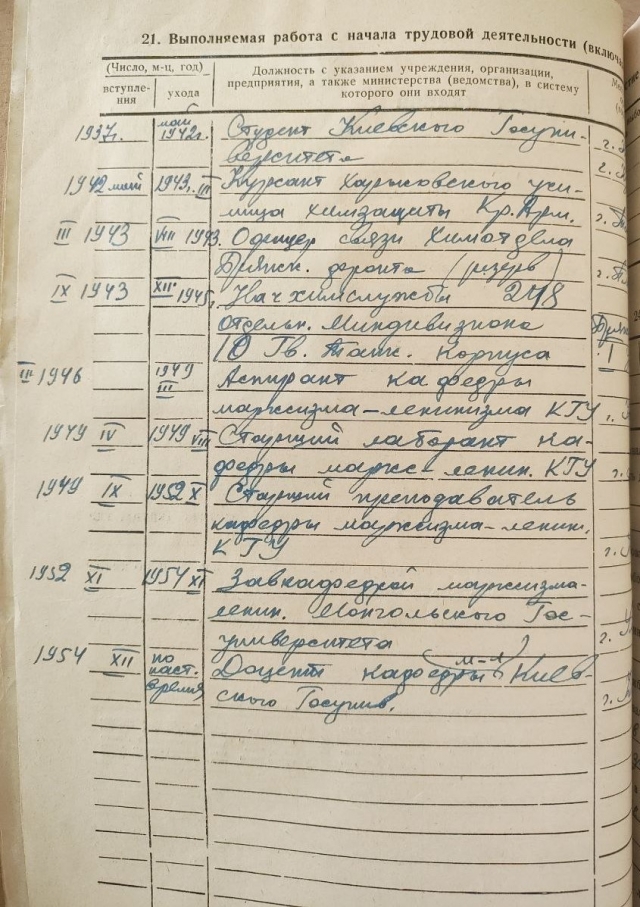 21. Выполняемая работа с начала трудовой деятельности (включа
(Число, м-ц, год)
вступле-
ния
ухода
Должность с указанием учреждения, организации,
предприятия, а также министерства (ведомства), в систему
которого они входят
1937г. май 1942г. Студент Киевского Госуни-
верситета
1942 май 1943. III Курсант Харьковского учи-
лища химзащиты Кр. Арм.
III 1943 VIII 1943. Офицер связи Химотдела
Брянск. фронта (резерв)
IX 1943 XII 1945г. Нач химслужбы 248
отдельн. Миндивизиона
10 Гв. Танк. Корпуса
III 1946 1949 III Аспирант кафедры
марксизма-ленинизма КГУ
1949 IV 1949 VIII Старший лаборант ка-
федры маркс-ленин. КГУ
1949 IX 1952 X Старший преподаватель
кафедры марксизма-ленин.
КГУ
1952 XI 1954 XI Завкафедрой марксизма-
ленин. Монгольского Гос-
университета
1954 XII по наст. время Доцент кафедры (м-л) Киев-
ского Госунив.